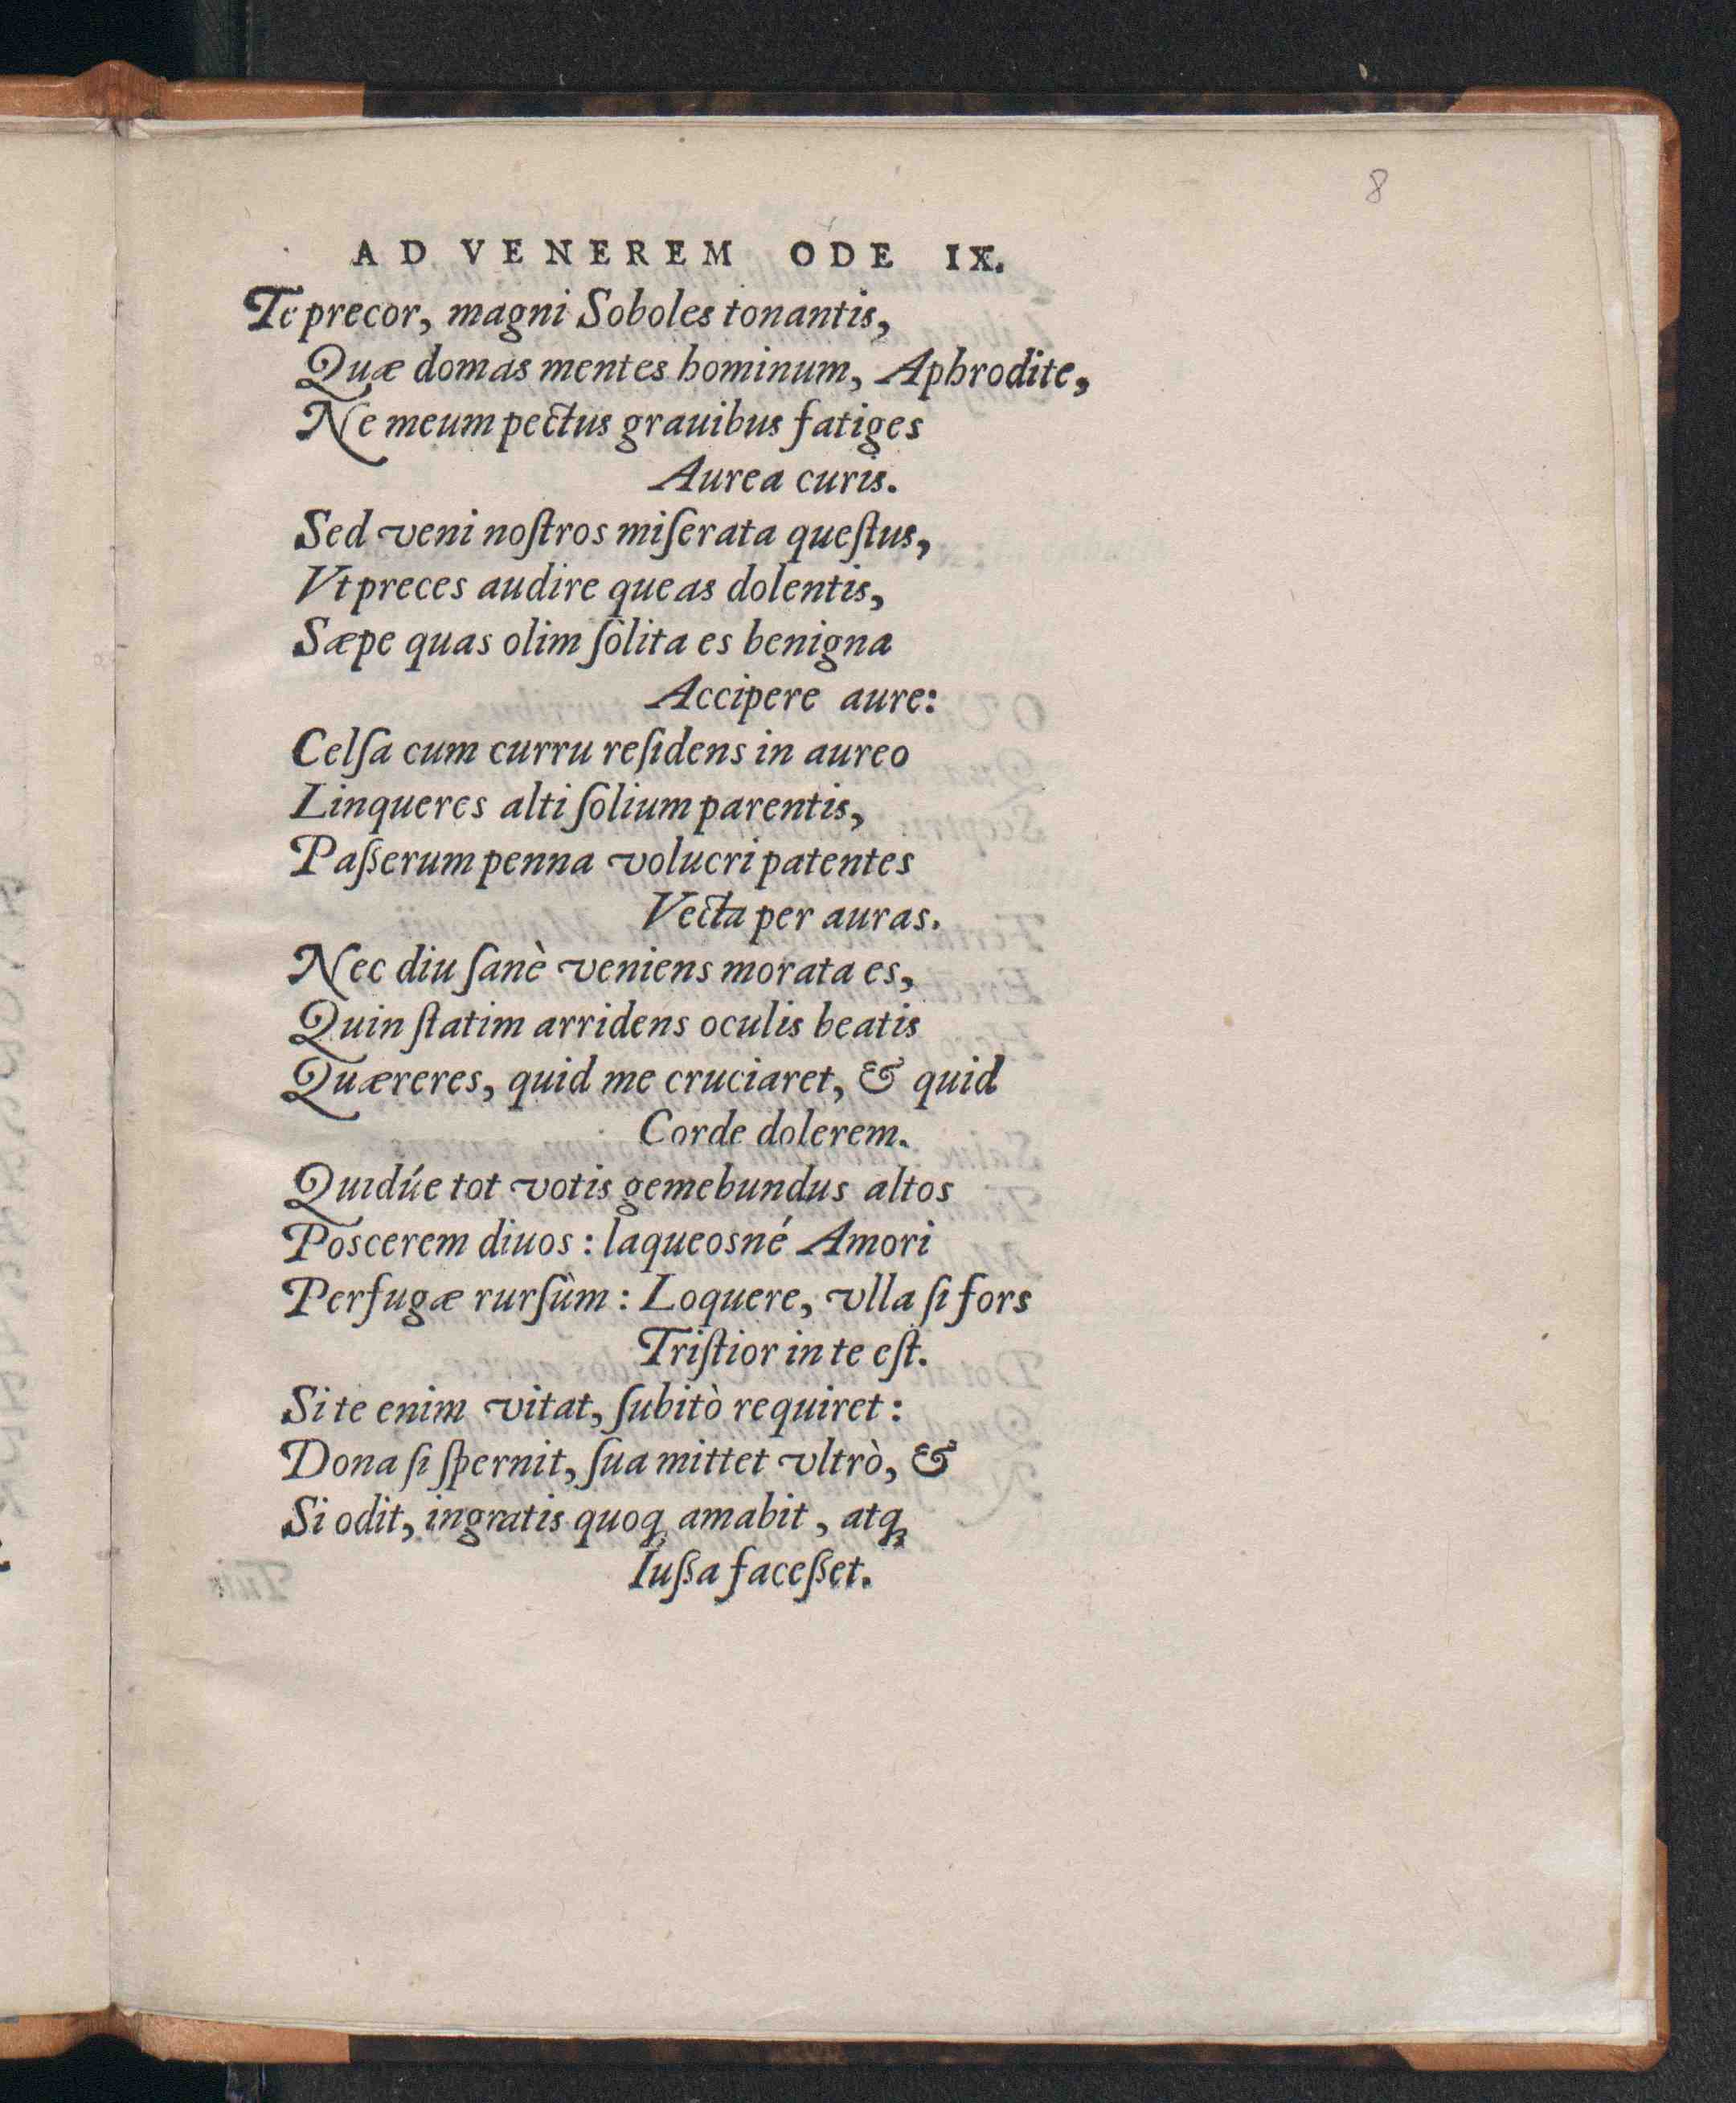 8
AD VENEREM ODE IX.
Te precor, magni Soboles tonantis,
Quæ domas mentes hominum, Aphrodite,
Ne meum pectus grauibus fatiges
Aurea curis.
Sed veni noſtros miſerata queſtus,
Vt preces audire queas dolentis,
Sæpe quas olim ſolita es benigna
Accipere aure:
Celſa cum curru reſidens in aureo
Linqueres alti ſolium parentis,
Paſſerum penna volucri patentes
Vecta per auras.
Nec diu ſanè veniens morata es,
Quin ſtatim arridens oculis beatis
Quæreres, quid me cruciaret, & quid
Corde dolerem.
Quidúe tot votis gemebundus altos
Poscerem diuos : laqueosné Amori
Perfugæ rurſùm : Loquere, vlla ſi fors
Triſtior in te eſt.
Si te enim vitat, ſubitò requiret :
Dona ſi ſpernit, ſua mittet vltrò, &
Si odit, ingratis quoq; amabit, atq;
Iuſſa faceſſet.